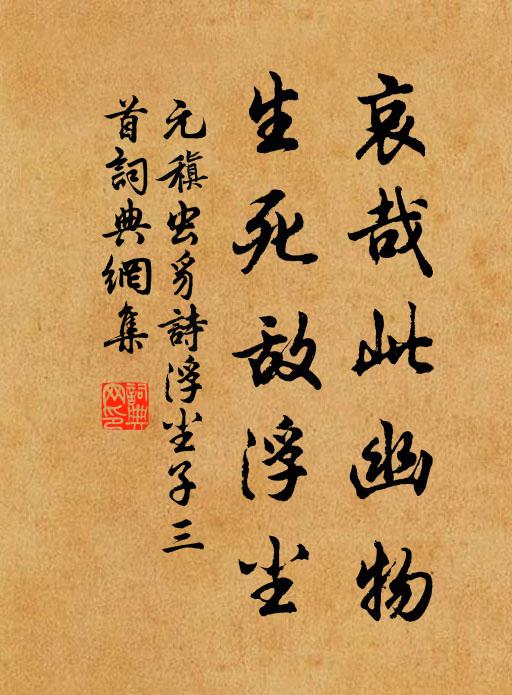 哀哉此幽物
生死敌浮尘
元稹虫豸詩浮尘子三
首詞典網集
詞典网印